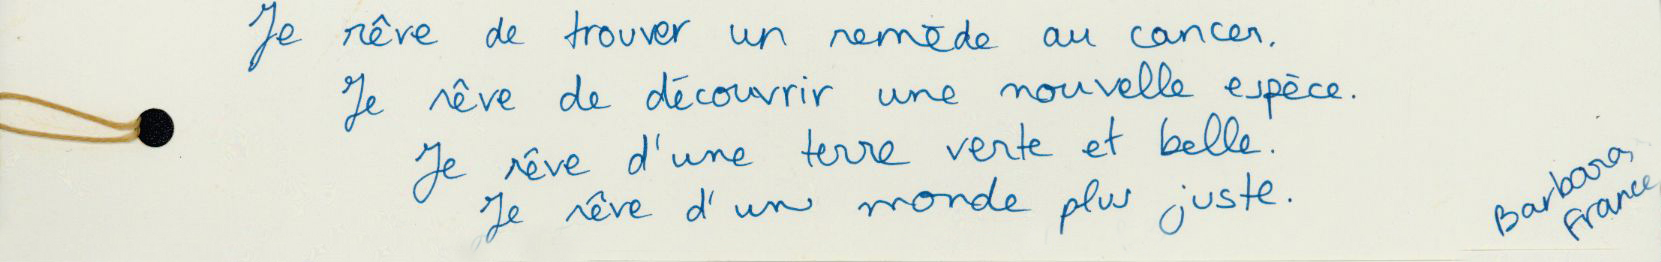 Je rêve de trouver un remède au cancer.
Je rêve de découvrir une nouvelle espèce.
Je rêve d'une terre verte et belle.
Je rêve d'un monde plus juste.
Barbara,
France